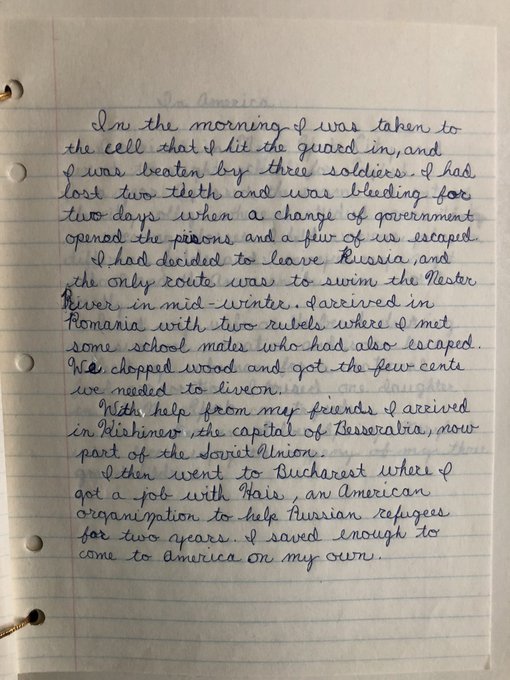 In the morning I was taken to
the cell that I hit the guard in, and
I was beaten by three soldiers. I had
lost two teeth and was bleeding for
two days when a change of government
opened the prisons and a few of us escaped.
I had decided to leave Russia, and
the only route was to swim the Nester
River in mid-winter. I arrived in
Romania with two rubels where I met
some school mates who had also escaped.
We chopped wood and got the few cents
we needed to liveon.
With help from my friends I arrived
in Kishinev, the capital of Besserabia, now
part of the Soviet Union.
I then went to Bucharest where I
got a job with Hais, an American
organization to help Russian refugees
for two years. I saved enough to
come to America on my own.